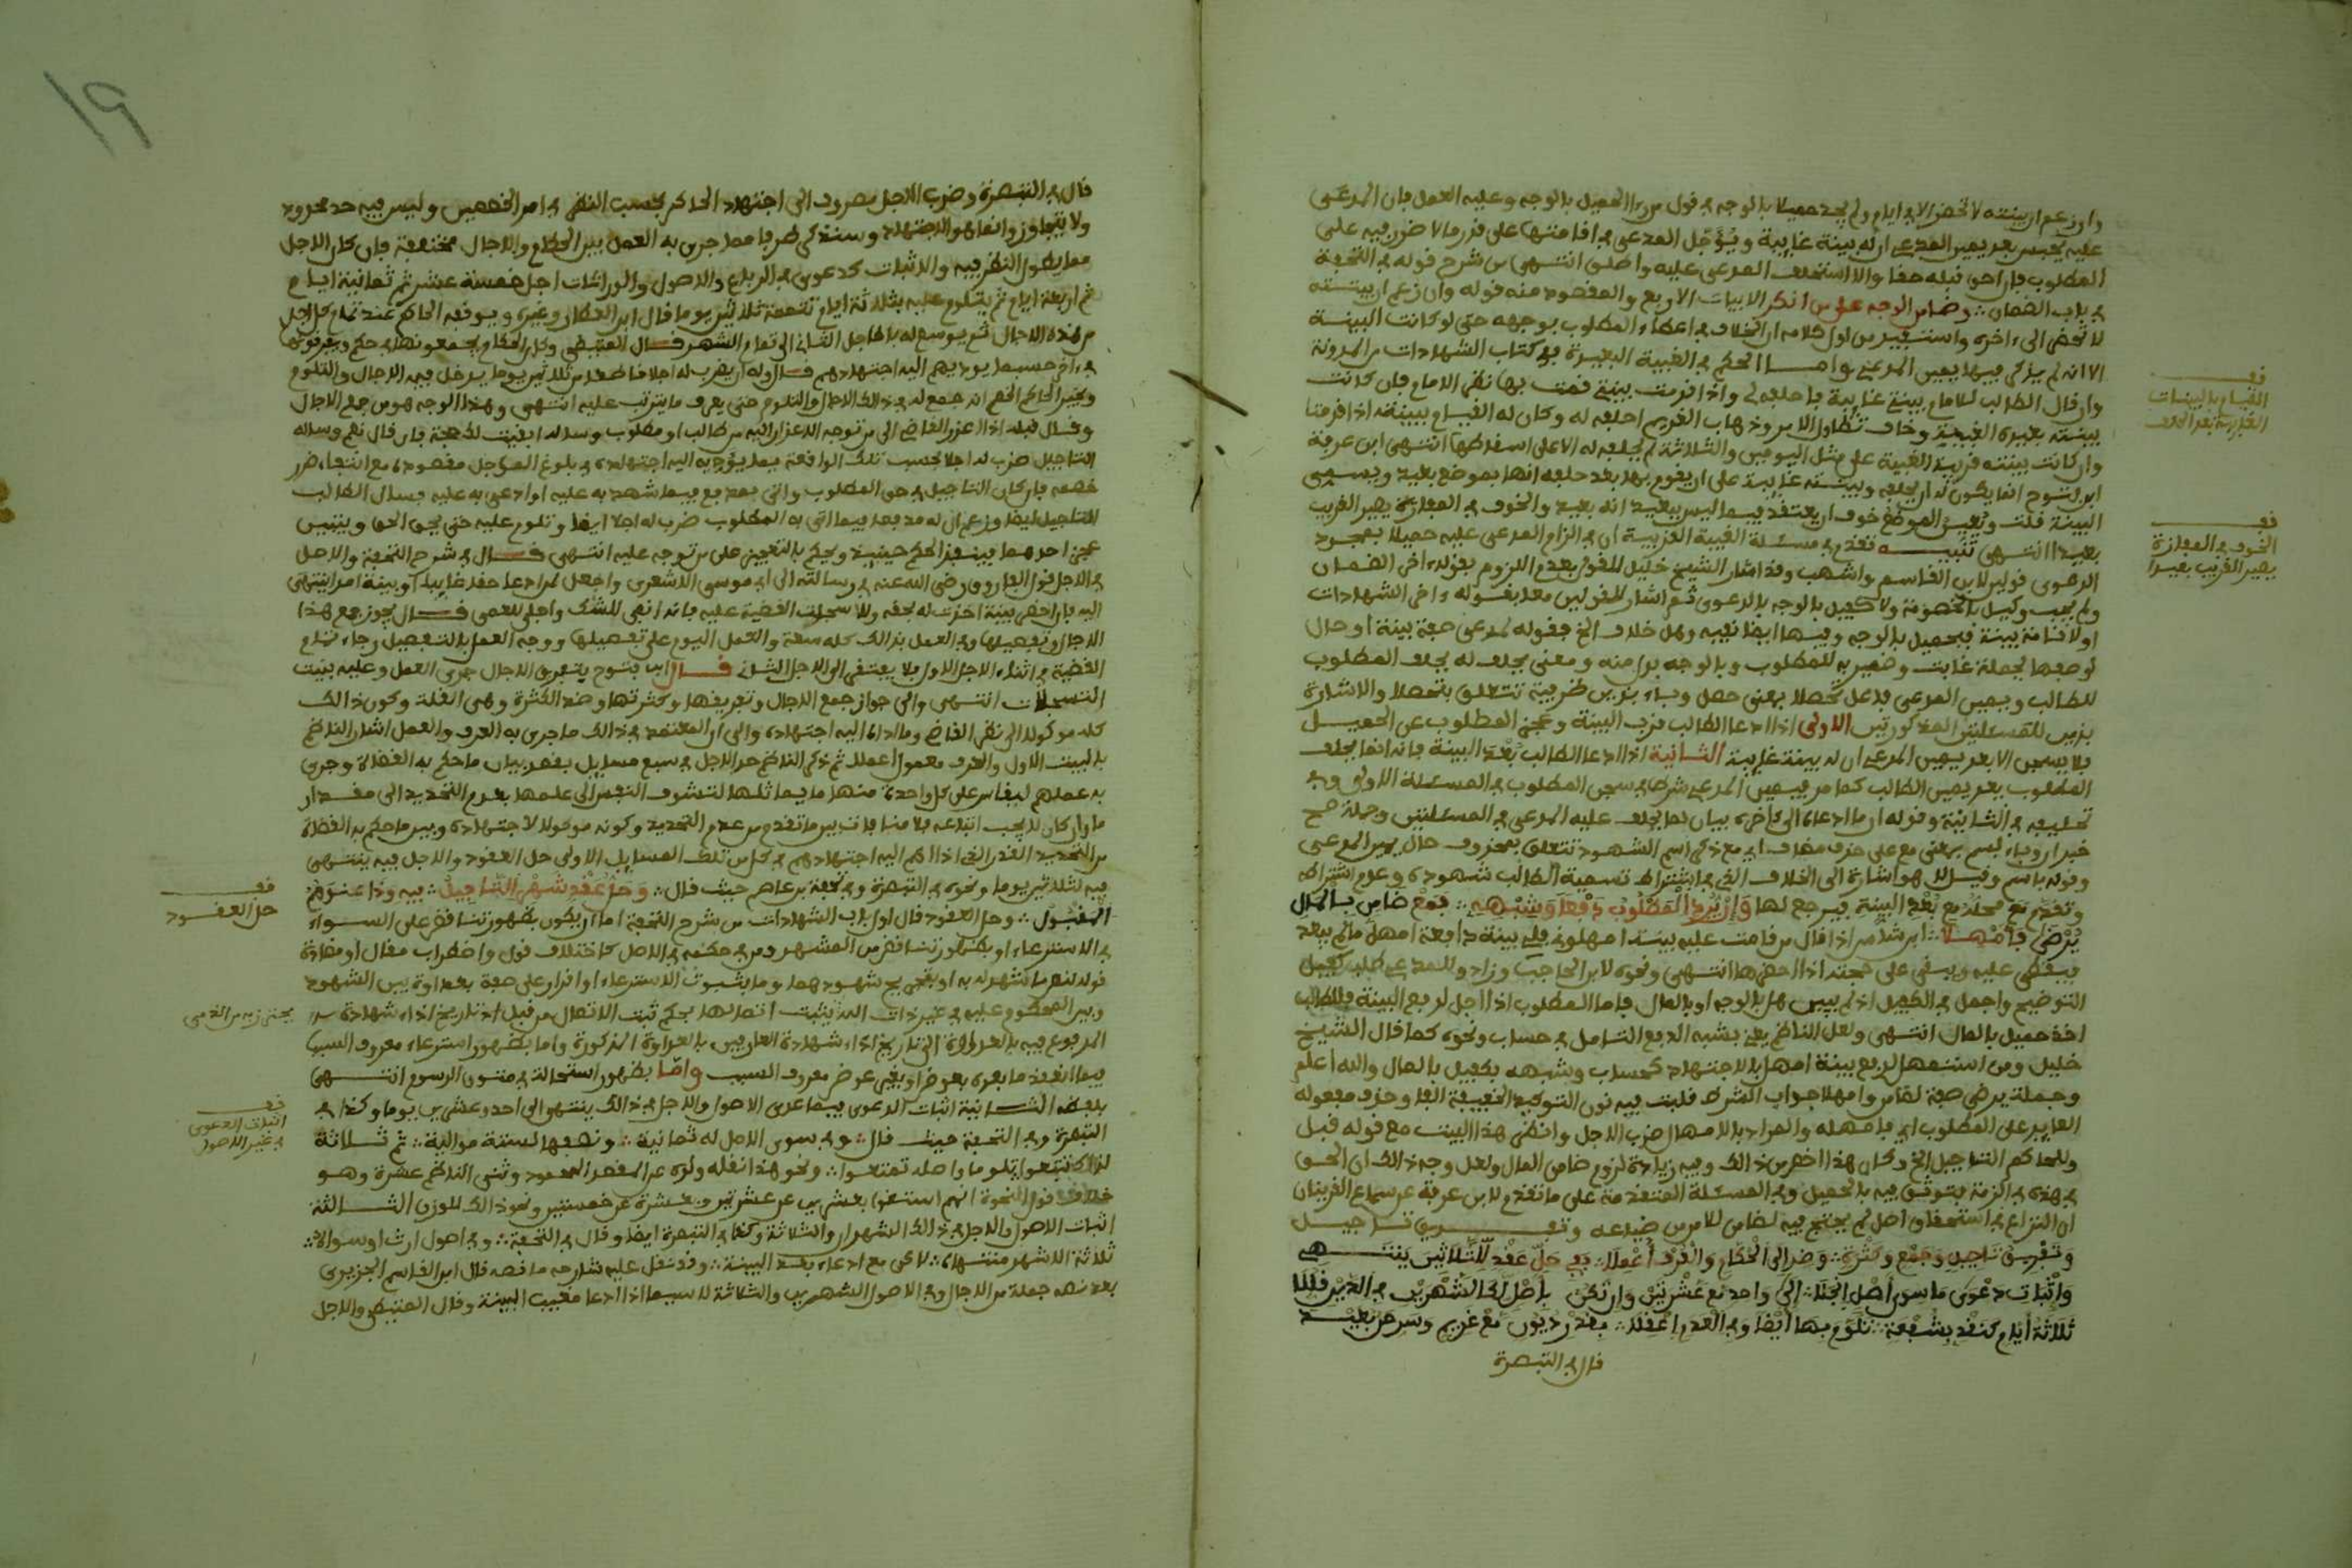 وان زعم ان بينته لا تحضر الا في ايام ولم يجد حميلا بالوجه في قول من را الحميل بالوجه وعليه العمل فان المدعى
عليه يحبس بعد يمين المدعي ان له بينة غايبة ويؤجل المدعي في اقامتها على قدر ما لا ضرر فيه على
المطلوب فان احق قبله حقا والا استحلف المدعى عليه واطلق انتهى من شرح قوله في التحفة
في باب الضمان وضامن الوجه على من انكر الابيات الاربع والمقصود منه قوله وان زعم ان بينته
لا تحضر الى اخره واستفيد من اول كلامه ان الخلاف في اعطاء المطلوب بوجهه حتى لو كانت البينة
الا انه لم يذكر فيها يمين المدعي واما الحكم في الغيبة البعيدة ففي كتاب الشهادات من المدونة
وان قال الطالب للامام بينتي غايبة فاحلفه لي واذا قدمت بينتي قمت بها نظر الامام فان كانت
بينته بعيدة الغيبة وخاف تطاول الامر وذهاب الغريم احلفه له وكان له القيام ببينته اذا قدمنا
وان كانت بينته قريبة الغيبة على مثل اليومين والثلاثة لم يحلفه له الا على اسقاطها انتهى ابن عرفة
ابن فتوح انما يكون له ان يحلفه وبينته غايبة على ان يقوم بها بعد حلفه انها بموضع بعيد ويسمى
البينة قلت وتعيين الموضع خوف ان يعتقد فيما ليس ببعيد انه بعيد والخوف في المفازة يصير القريب
بعيدا انتهى تنبيه تقدم في مسئلة الغيبة القريبة ان في الزام المدعى عليه حميلا بمجرد
الدعوى قولين لابن القاسم واشهب وقد اشار الشيخ خليل للقول بعدم اللزوم بقوله اخر الضمان
ولم يجب وكيل بالخصومة ولا كفيل بالوجه بالدعوى ثم اشار للقولين معا بقوله اخر الشهادات
او لاقامة بينة فبحميل بالوجه وفيها ايضا نفيه وهل خلاف الخ فقوله لمدعي صفة بينة او حال
لوصفها بجملة غابت وضمير به للمطلوب وبالوجه بدل منه ومعنى يحلف له يحلف المطلوب
للطالب ويمين المدعى فاعل تحصلا بمعنى حصل وباء بذين ظرفية تتعلق بتحصلا والاشارة
بذين للمسئلتين المذكورتين الاولى اذا ادعا الطالب قرب البينة وعجز المطلوب عن الحميل
فلا يسجن الا بعد يمين المدعي ان له بينة غايبة الثانية اذا ادعا الطالب بعد البينة فانه انما يحلف
المطلوب بعد يمين الطالب كما مر فيمين المدعي شرط في سجن المطلوب في المسئلة الاولى وفي
تحليفه في الثانية وقوله ان ما ادعاه الى اخره بيان لما يحلف عليه المدعي في المسئلتين وجملة صح
خبر ان وباء بسم بمعنى مع على حذف مضاف اي مع ذكر اسم الشهود تتعلق بمحذوف حال يمين المدعي
وقوله باسم وقيل لا هو اشارة الى الخلاف الذي في اشتراط تسمية الطالب شهوده وعدم اشتراطه
وتقدم مع محله مع بعد البينة فيرجع لها وان يرد المطلوب دفعا وشبهه فمع ضامن بالمال
يرضى فامهلا ابن شاس اذا قال من قامت عليه بينة امهلوني فلي بينة دافعة امهل ما لم يبعد
فيقضي عليه ويبقى على حجته اذا احضرها انتهى ونحوه لابن الحاجب وزاد وللمدعي طلب كفيل
التوضيح واجمل في الكفيل اذ لم يبين هل بالوجه او بالمال فاما المطلوب اذا اجل لدفع البينة فللطالب
اخذ حميل بالمال انتهى ولعل الناظم يعني بشبه الدفع التامل في حساب ونحوه كما قال الشيخ
خليل ومن استمهل لدفع بينة امهل بالاجتهاد كحساب وشبهه بكفيل بالمال والله اعلم
وجملة يرضى صفة لضامن وامهلا جواب الشرط قلبت فيه نون التوكيد الخفيفة الفا وحذف مفعوله
العايد على المطلوب اي فامهله والمراد بالامهال ضرب الاجل وانظر هذا البيت مع قوله قبل
وللحاكم التاجيل الخ وكان هذا اخص من ذلك وفيه زيادة لزوم ضامن المال ولعل وجه ذلك ان الحق
في هذه في الذمة فيتوثق فيه بالحميل وفي المسئلة المتقدمة على ما تقدم لابن عرفة عن سماع القرينان
ان النزاع في استحقاق اصل لم يحتج فيه لضامن للامن من ضياعه وتفريق تاجيل
وتفريق تاجيل وجمع وكثرة وضد الى الحكام والعرف اعملا ففي حل عقد للثلاثين ينتهي
واثبات دعوى ما سوى اصل انجلا الى واحد مع عشرتين وان تكن باصل لكا الشهرين في الدين قللا
ثلاثة ايام كنقد بشفعة تلوم بها ايضا وفي العدم اعملا بقدر ديون مع غريم وسرحن بعيد
قال في التبصرة
فقـ
القيام بالبينات
الغايبة بعد الحلف
فقـ
الخوف في المفازة
يصير القريب بعيدا
١٩
قال في التبصرة وضرب الاجل مصروف الى اجتهاد الحاكم بحسب النظر في امر الخصمين وليس فيه حد محدود
ولا يتجاوز وانما هو الاجتهاد وسنذكر طرفا مما جرى به العمل بين الحكام والاجال مختلفة فان كان الاجل
مما يطول النظر فيه والاثبات كدعوى في الرباع والاصول والوراثات اجل خمسة عشر ثم ثمانية ايام
ثم اربعة ايام ثم يتلوم عليه بثلاثة ايام تتمة ثلاثين يوما قال ابن العطار وغيره ويوقفه الحاكم عند تمام كل اجل
من هذه الاجال ثم يوسع له بالاجل الثاني الى تمام الشهر قال المتيطي وكان الحكام يجمعونها في حكم ويفرقونها
في اخر حسبما يوديهم اليه اجتهادهم قال وله ان يضرب له اجلا قاطعا من ثلاثين يوما يدخل فيه الاجال والتلوم
ويخبر الحاكم الخصم انه جمع له في ذلك الاجال والتلوم حتى يعرف ما يترتب عليه انتهى وهذا الوجه هو من جمع الاجال
وقال قبله اذا اعذر القاضي الى من توجه الاعذار اليه من طالب او مطلوب وساله ابقيت لك حجة فان قال نعم وساله
التاجيل ضرب له اجلا بحسب تلك الواقعة بما يؤديه اليه اجتهاده في بلوغ المؤجل مقصوده مع انتفاء ضرر
خصمه فان كان التاجيل في حق المطلوب واتى بمدفع فيما شهد به عليه او ادعى به عليه فسال الطالب
التاجيل ايضا وزعم ان له مدفعا فيما اتى به المطلوب ضرب له اجلا ايضا وتلوم عليه حتى يحق الحق ويتبين
عجز احدهما فينفذ الحكم حينئذ ويحكم بالتعجيز على من توجه عليه انتهى قال في شرح التحفة والاصل
في الاجل قول الفاروق رضي الله عنه في رسالته الى ابي موسى الاشعري واجعل لمن ادعا حقا غايبا او بينة امدا ينتهي
اليه فان احضر بينة اخذت له بحقه والا سجلت القضية عليه فانه انفى للشك واجلى للعمى قال يجوز جمع هذا
الاجال وتفصيلها وفي العمل بذلك كله سعة والعمل اليوم على تفصيلها ووجه العمل بالتفصيل رجاء تمام
القضية في اثناء الاجل الاول فلا يفتقر الى الاجل الثاني قال ابن فتوح بتفريق الاجال جرى العمل وعليه بنيت
السجلات انتهى والى جواز جمع الاجال وتفريقها وكثرتها وضد الكثرة وهي القلة وكون ذلك
كله موكولا الى نظر القاضي وما اداه اليه اجتهاده والى ان المعتمد في ذلك ما جرى به العرف والعمل اشار الناظم
بالبيت الاول والعرف معمول اعملا ثم ذكر الناظم حد الاجل في سبع مسايل بقصد بيان ما حكم به القضاة وجرى
به عملهم ليقاس على كل واحدة منها ما يماثلها لتشوف النفس الى علمها بعدم التحديد الى مقدار
ما وان كان لا يجب اتباعه فلا منافات بين ما تقدم من عدم التحديد وكونه موكولا للاجتهاد وبين ما حكم به القضاة
من التحديد القدر الذي اداهم اليه اجتهادهم في كل من تلك المسايل الاولى حل العقود والاجل فيه ينتهي
فيه لثلاثين يوما ونحوه في التبصرة وفي تحفة بن عاصم حيث قال وحل عقد شهر التاجيل فيه وذا عندهم
المقبول وحل العقود قال اول باب الشهادات من شرح التحفة اما ان يكون بظهور تناقض على السواء
في الاسترعاء او بظهور تناقض من المشهود في حكمه في الاصل كاختلاف قول واضطراب مقال او مضادة
قوله لنص ما شهد له به او بتجريح شهودهما وما بثبوت الاسترعاء او اقرار على صفة بعداوة بين الشهود
وبين المحكوم عليه في غير ذات الله يثبت اتصالها بحكم ثبت الاتصال من قبل اذ تاريخ اداء شهادة
المدفوع فيه بالعداوة الى تاريخ اداء شهادة العارفين بالعداوة المذكورة واما بظهور استرعاء معروف السبب
فيما انعقد ما بعده بعوض او بغير عوض معروف السبب واما بظهور استحالة في متون الرسوم انتهى
بلفظه الثانية اثبات الدعوى فيما عدى الاصول والاجل في ذلك ينتهي الى احد وعشرين يوما وكذا في
التبصرة وفي التحفة حيث قال وفي سوى الاصل له ثمانية ونصفها لستة موالية ثم ثلاثة
لذاك تتبع
خلاف قول النحوة انهم استغنوا بعشرين عن عشرتين وبعشرة عن خمستين ونحو ذلك للوزن الثالثة
اثبات الاصول والاجل في ذلك الشهران والثلاثة وكذا في التبصرة ايضا وقال في التحفة وفي اصول ارث او سواه
ثلاثة الاشهر منتهاه لكن مع ادعاء بعد البينة وقد نقل عليه شارحه ما نصه قال ابن القاسم الجزيري
بعد نصه جملة من الاجال وفي الاصول الشهرين والثلاثة لا سيما اذا ادعا مغيب البينة وقال المتيطي والاجل
فقـ
حل العقود
فقـ
اثبات الدعوى
في غير الاصول